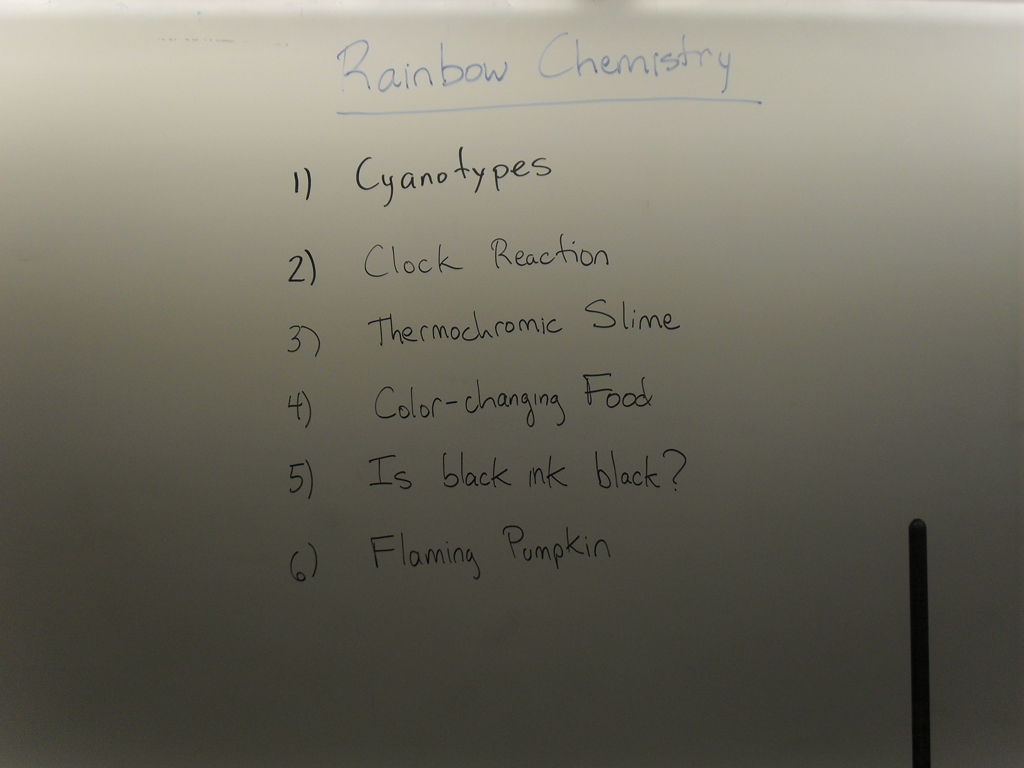 Rainbow Chemistry
1) Cyanotypes
2) Clock Reaction
3) Thermochromic Slime
4) Color-changing Food
5) Is black ink black?
6) Flaming Pumpkin